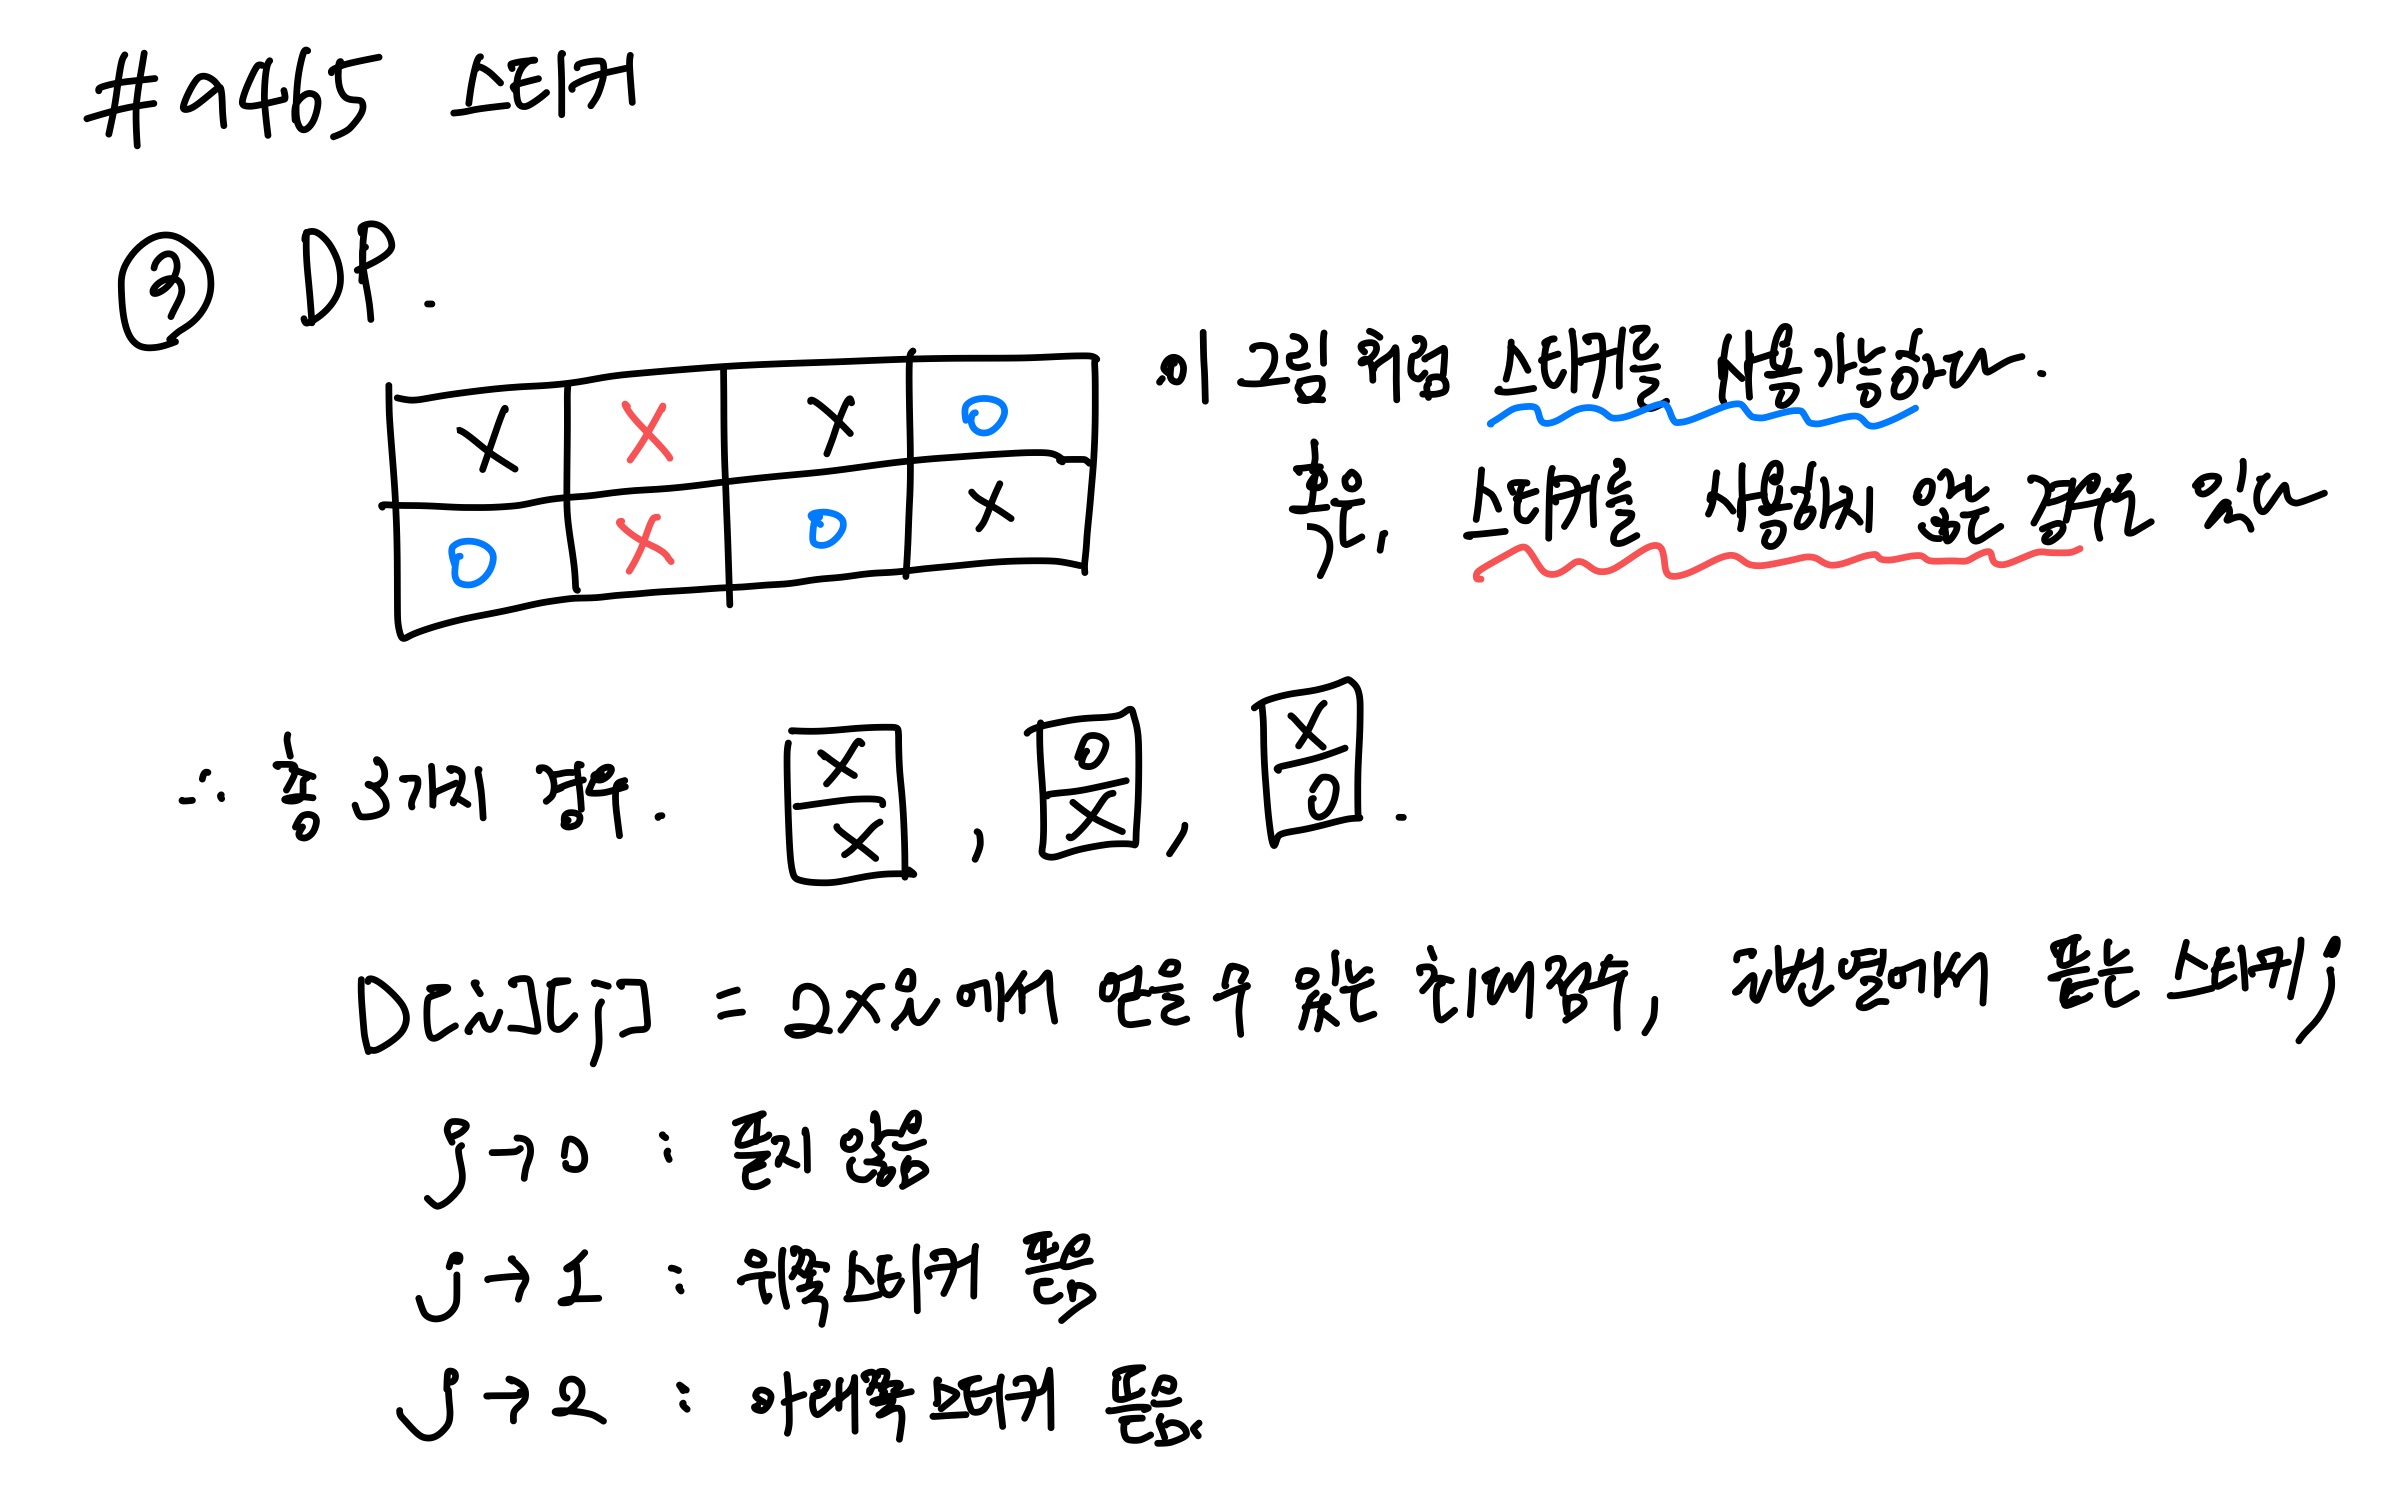 #9465 스티커
② DP.
X X X O
O X O X
이 그림처럼 스티커를 사용가능하나.
혹은, 스티커를 사용하지 않는 경우도 있다
∴ 총 3개의 경우. X X , O X , X O .
D[i][j] = 2×i 에서 얻을 수 있는 최대점수, i번 열에서 뜯는 스티커 j
j → 0 : 뜯지 않음
j → 1 : 위쪽 스티커 뜯음
j → 2 : 아래쪽 스티커 뜯음.